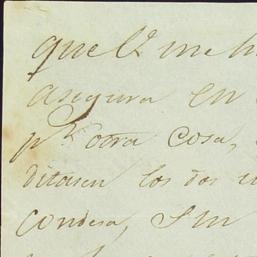 que V. me h
asegura en
pr. otra cosa,
ditasen los dos
condesa, sin